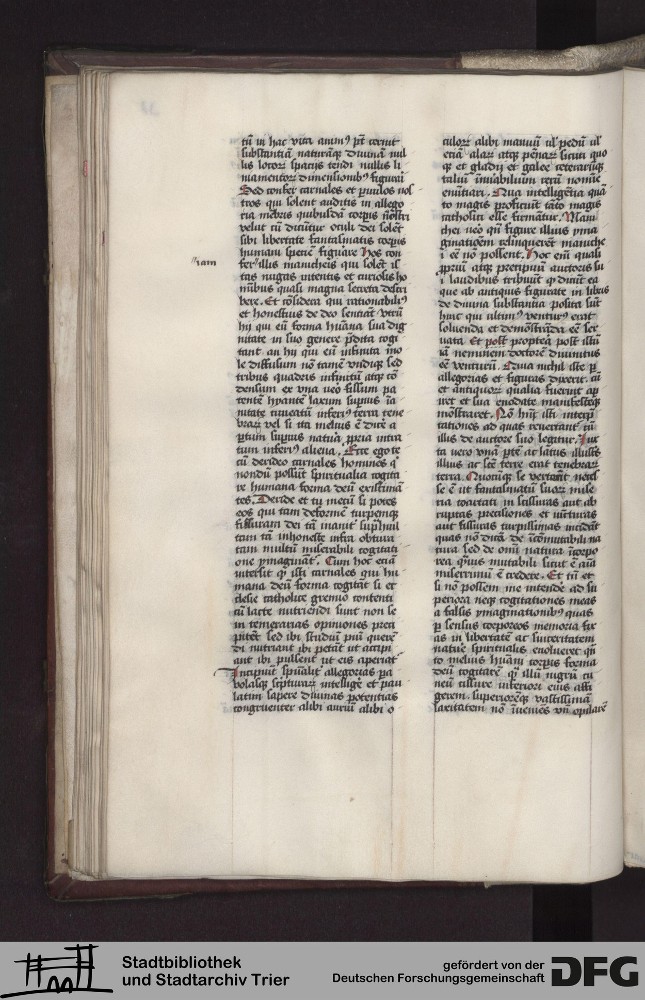 tū in hac vita animꝰ pt̄ cernit
substantiā naturāqꝫ diuinā nul
lis locoꝝ spacijs tendi nullis li
niamentoꝝ dimensionibꝰ figurari
Sed confert carnales et puulos nos
tros qui solent auditis in allego
ria mēbris quibusdā corpis nostri
velut cū dicūtur oculi dei solēt
sibi libertate fantasmatis corpus
humani speciē figurare hos con
fer illis manicheis qui solēt is
tas nugas intentis et curiosis ho
nibus quasi magna secreta descri
bere. Et cōsidera qui
et honestius de deo sentiāt vtrū
hij qui eū forma hūana sua dig
nitate in suo genere p̄dita cogi
tant an hij qui eū infinita mo
le diffusum nō tamē vndiqꝫ sed
tribus quadris infinitū atqꝫ cō
densum ex vna vero fissum pa
tentē hyantē laxum supius īa
nitate truncatū inferiꝰ terra tene
braꝝ vel si ita melius ē dicē a
ptum supius natura ppria intra
tum inferiꝰ aliena. Ecce ego te
cū derideo carnales homines qꝛ
nondū possūt spiritualia cogita
re humana forma deū existimā
tes. Deride et tu mecū si potes
eos qui tam deformē turpemqꝫ
fissuram dei
tam tā inhoneste infra obtura
tam multū miserabili cogitati
one ymaginant̄. Cum hoc etiā
intersit qꝛ isti carnales qui hu
mana deū forma cogitāt si ec
clesie catholice gremio contenti
cū lacte nutriendi sunt non se
in temerarias opiniones preci
pitēt sed ibi studiū piū querē
di nutriant ibi petāt ut accipi
ant ibi pulsent ut eis aperiat̄
Incipiūt spūalit̄ allegorias pa
rabolasqꝫ scpturaꝝ intellige et pau
latim sapere diuinas potentias
congruenter alibi auriū alibi o
iam
culoꝝ alibi manuū ul' pedū ul'
etiā alaꝝ atqꝫ pēnaꝝ sicuti quo
qꝫ et gladij et galee ceteraꝝqꝫ
taliū inūabilium rerū nomīe
enūtiari. Qua intelligētia quā
to magis proficiūt tāto magis
catholici esse firmātur. Mani
chei vero qn̄ figure illius yma
ginatiōem relinquerēt maniche
i ēē nō possent. Hoc em̄ quasi
ppriū atqꝫ precipuū auctoris su
i laudibus tribuūt qꝫ dicūt ea
que ab antiquis figurate in libris
de diuina substantia posita sūt
huic qui ultimꝰ venturꝰ erat
soluenda et demōstrāda ēē ser
uata Et post propterea post istū
iā neminem doctorē diuinitus
ēē venturū. Quia nichil iste p
allegorias et figuras dixerit. cū
et antiquoꝝ qualia fuerīt ap
iret et sua enodate manifesteqꝫ
mōstraret. Nō hn̄t isti interp̄
tationes ad quas reuertant̄ cū
illis de auctore suo legitur. Iux
ta vero vnā pte ac latus illust̄s
illius ac sc̄e terre erat tenebraꝝ
terra. Quocūqꝫ se vertāt neces
se ē ut fantasmatū suoꝝ mise
ria coartati in scissuras aut ab
ruptas precisiones et iūcturas
aut fissuras turpissimas incidāt
quas nō dicā de incōmutabili na
tura sed de omī natura īcorpo
rea quis mutabili sicut ē aīa
miserrimū ē credere. Et tū et
si nō possem me intendē ad su
periora neqꝫ cogitationes meas
a falsis ymaginationibꝰ quas
p sensus corporeos memoria fix
as in libertatē ac sinceritatem
nature spiritualis euolueret qn̄
to melius hūani corpis forma
deū cogitarē qꝫ illū nigrū cu
neū fissure inferiori eius affi
gerem. superiorēqꝫ vastissimā
laxitatem nō īueniēs vn̄ opilarē
Stadtbibliothek
und Stadtarchiv Trier
gefördert von der
Deutschen Forschungsgemeinschaft
DFG